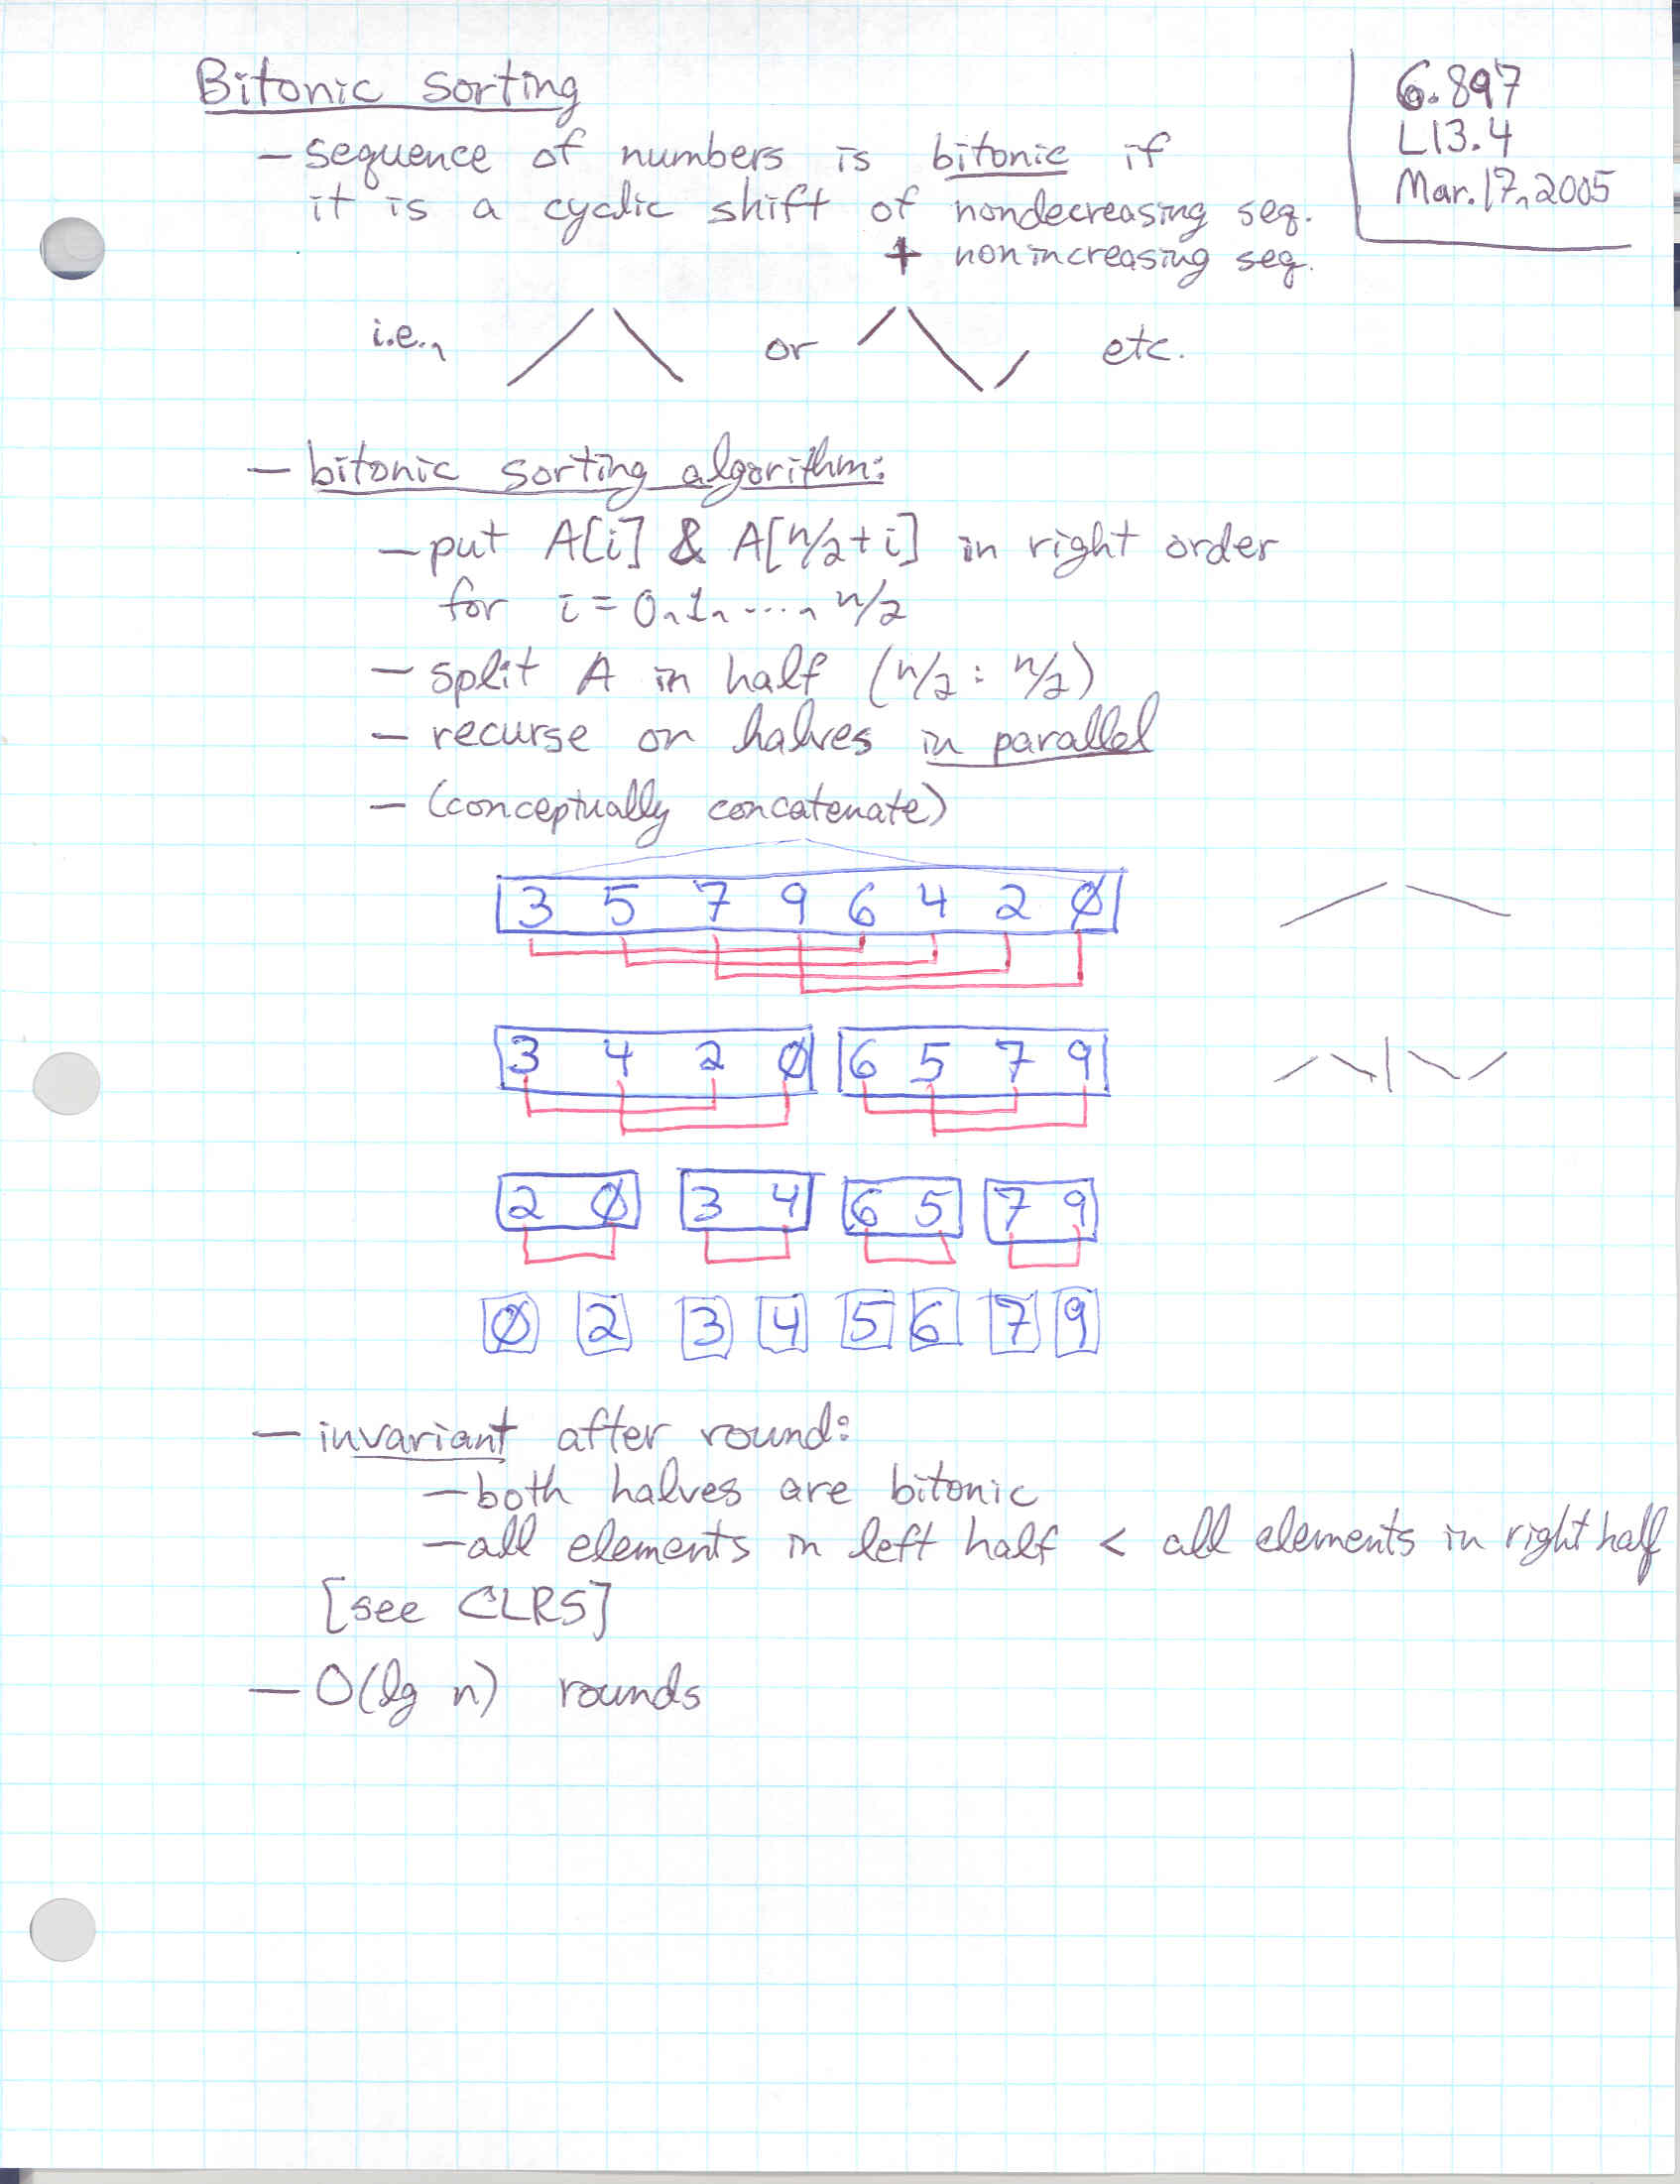 Bitonic sorting
6.897
L13.4
Mar. 17, 2005
– sequence of numbers is bitonic if
it is a cyclic shift of nondecreasing seq.
+ nonincreasing seq.
i.e., or etc.
– bitonic sorting algorithm:
– put A[i] & A[n/2+i] in right order
for i = 0, 1, ..., n/2
– split A in half (n/2 : n/2)
– recurse on halves in parallel
– (conceptually concatenate)
3 5 7 9 6 4 2 Ø
3 4 2 Ø 6 5 7 9
2 Ø 3 4 6 5 7 9
Ø 2 3 4 5 6 7 9
– invariant after round:
– both halves are bitonic
– all elements in left half < all elements in right half
[see CLRS]
– O(lg n) rounds